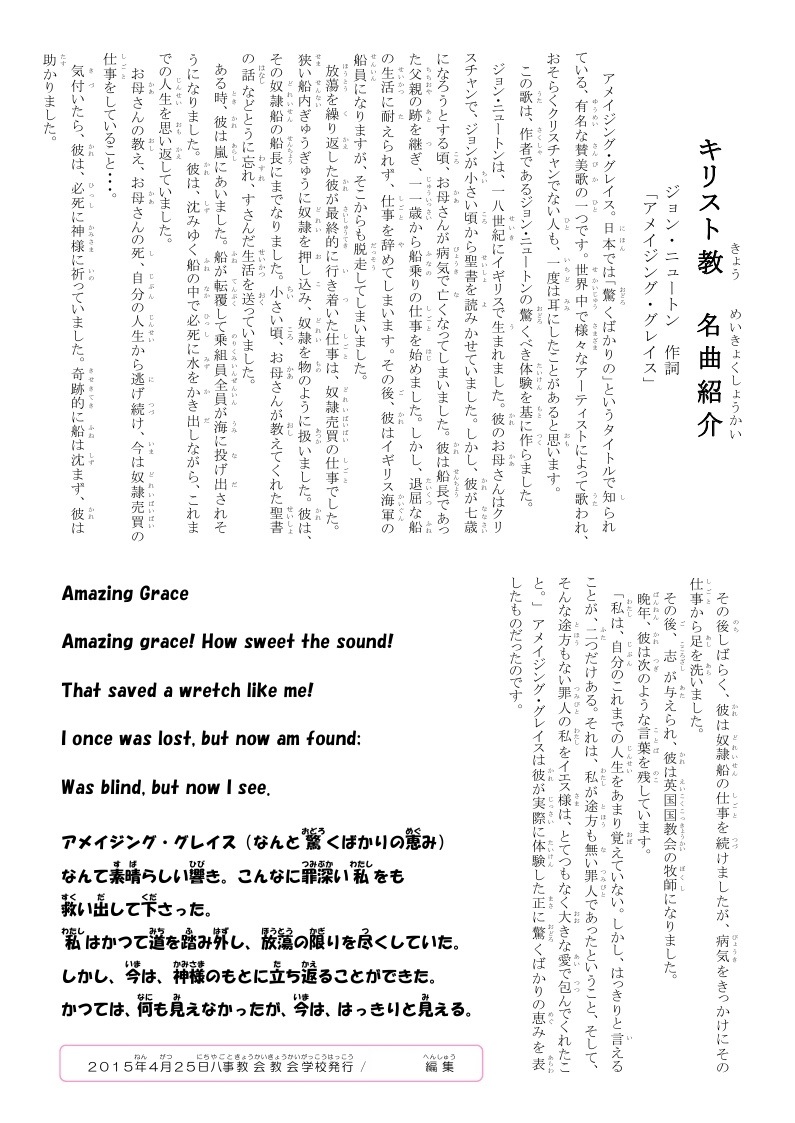 キリスト教　名曲紹介
ジョン・ニュートン　作詞
「アメイジング・グレイス」
アメイジング・グレイス。日本では「驚くばかりの」というタイトルで知られ
ている、有名な賛美歌の一つです。世界中で様々なアーティストによって歌われ、
おそらくクリスチャンでない人も、一度は耳にしたことがあると思います。
この歌は、作者であるジョン・ニュートンの驚くべき体験を基に作らました。
ジョン・ニュートンは、一八世紀にイギリスで生まれました。彼のお母さんはクリ
スチャンで、ジョンが小さい頃から聖書を読みかせていました。しかし、彼が七歳
になろうとする頃、お母さんが病気で亡くなってしまいました。彼は船長であっ
た父親の跡を継ぎ、一一歳から船乗りの仕事を始めました。しかし、退屈な船
の生活に耐えられず、仕事を辞めてしまいます。その後、彼はイギリス海軍の
船員になりますが、そこからも脱走してしまいました。
放蕩を繰り返した彼が最終的に行き着いた仕事は、奴隷売買の仕事でした。
狭い船内ぎゅうぎゅうに奴隷を押し込み、奴隷を物のように扱いました。彼は、
その奴隷船の船長にまでなりました。小さい頃、お母さんが教えてくれた聖書
の話などとうに忘れ、すさんだ生活を送っていました。
ある時、彼は嵐にあいました。船が転覆して乗組員全員が海に投げ出されそ
うになりました。彼は、沈みゆく船の中で必死に水をかき出しながら、これま
での人生を思い返していました。
お母さんの教え、お母さんの死、自分の人生から逃げ続け、今は奴隷売買の
仕事をしていること・・・。
気付いたら、彼は、必死に神様に祈っていました。奇跡的に船は沈まず、彼は
助かりました。
その後しばらく、彼は奴隷船の仕事を続けましたが、病気をきっかけにその
仕事から足を洗いました。
その後、志が与えられ、彼は英国国教会の牧師になりました。
晩年、彼は次のような言葉を残しています。
「私は、自分のこれまでの人生をあまり覚えていない。しかし、はっきりと言える
ことが、二つだけある。それは、私が途方も無い罪人であったということ、そして、
そんな途方もない罪人の私をイエス様は、とてつもなく大きな愛で包んでくれたこ
と。」アメイジング・グレイスは彼が実際に体験した正に驚くばかりの恵みを表
したものだったのです。
Amazing Grace
Amazing grace! How sweet the sound!
That saved a wretch like me!
I once was lost, but now am found;
Was blind, but now I see.
アメイジング・グレイス（なんと驚くばかりの恵み）
なんて素晴らしい響き。こんなに罪深い私をも
救い出して下さった。
私はかつて道を踏み外し、放蕩の限りを尽くしていた。
しかし、今は、神様のもとに立ち返ることができた。
かつては、何も見えなかったが、今は、はっきりと見える。
２０１５年４月２５日八事教会教会学校発行 /　　　編集